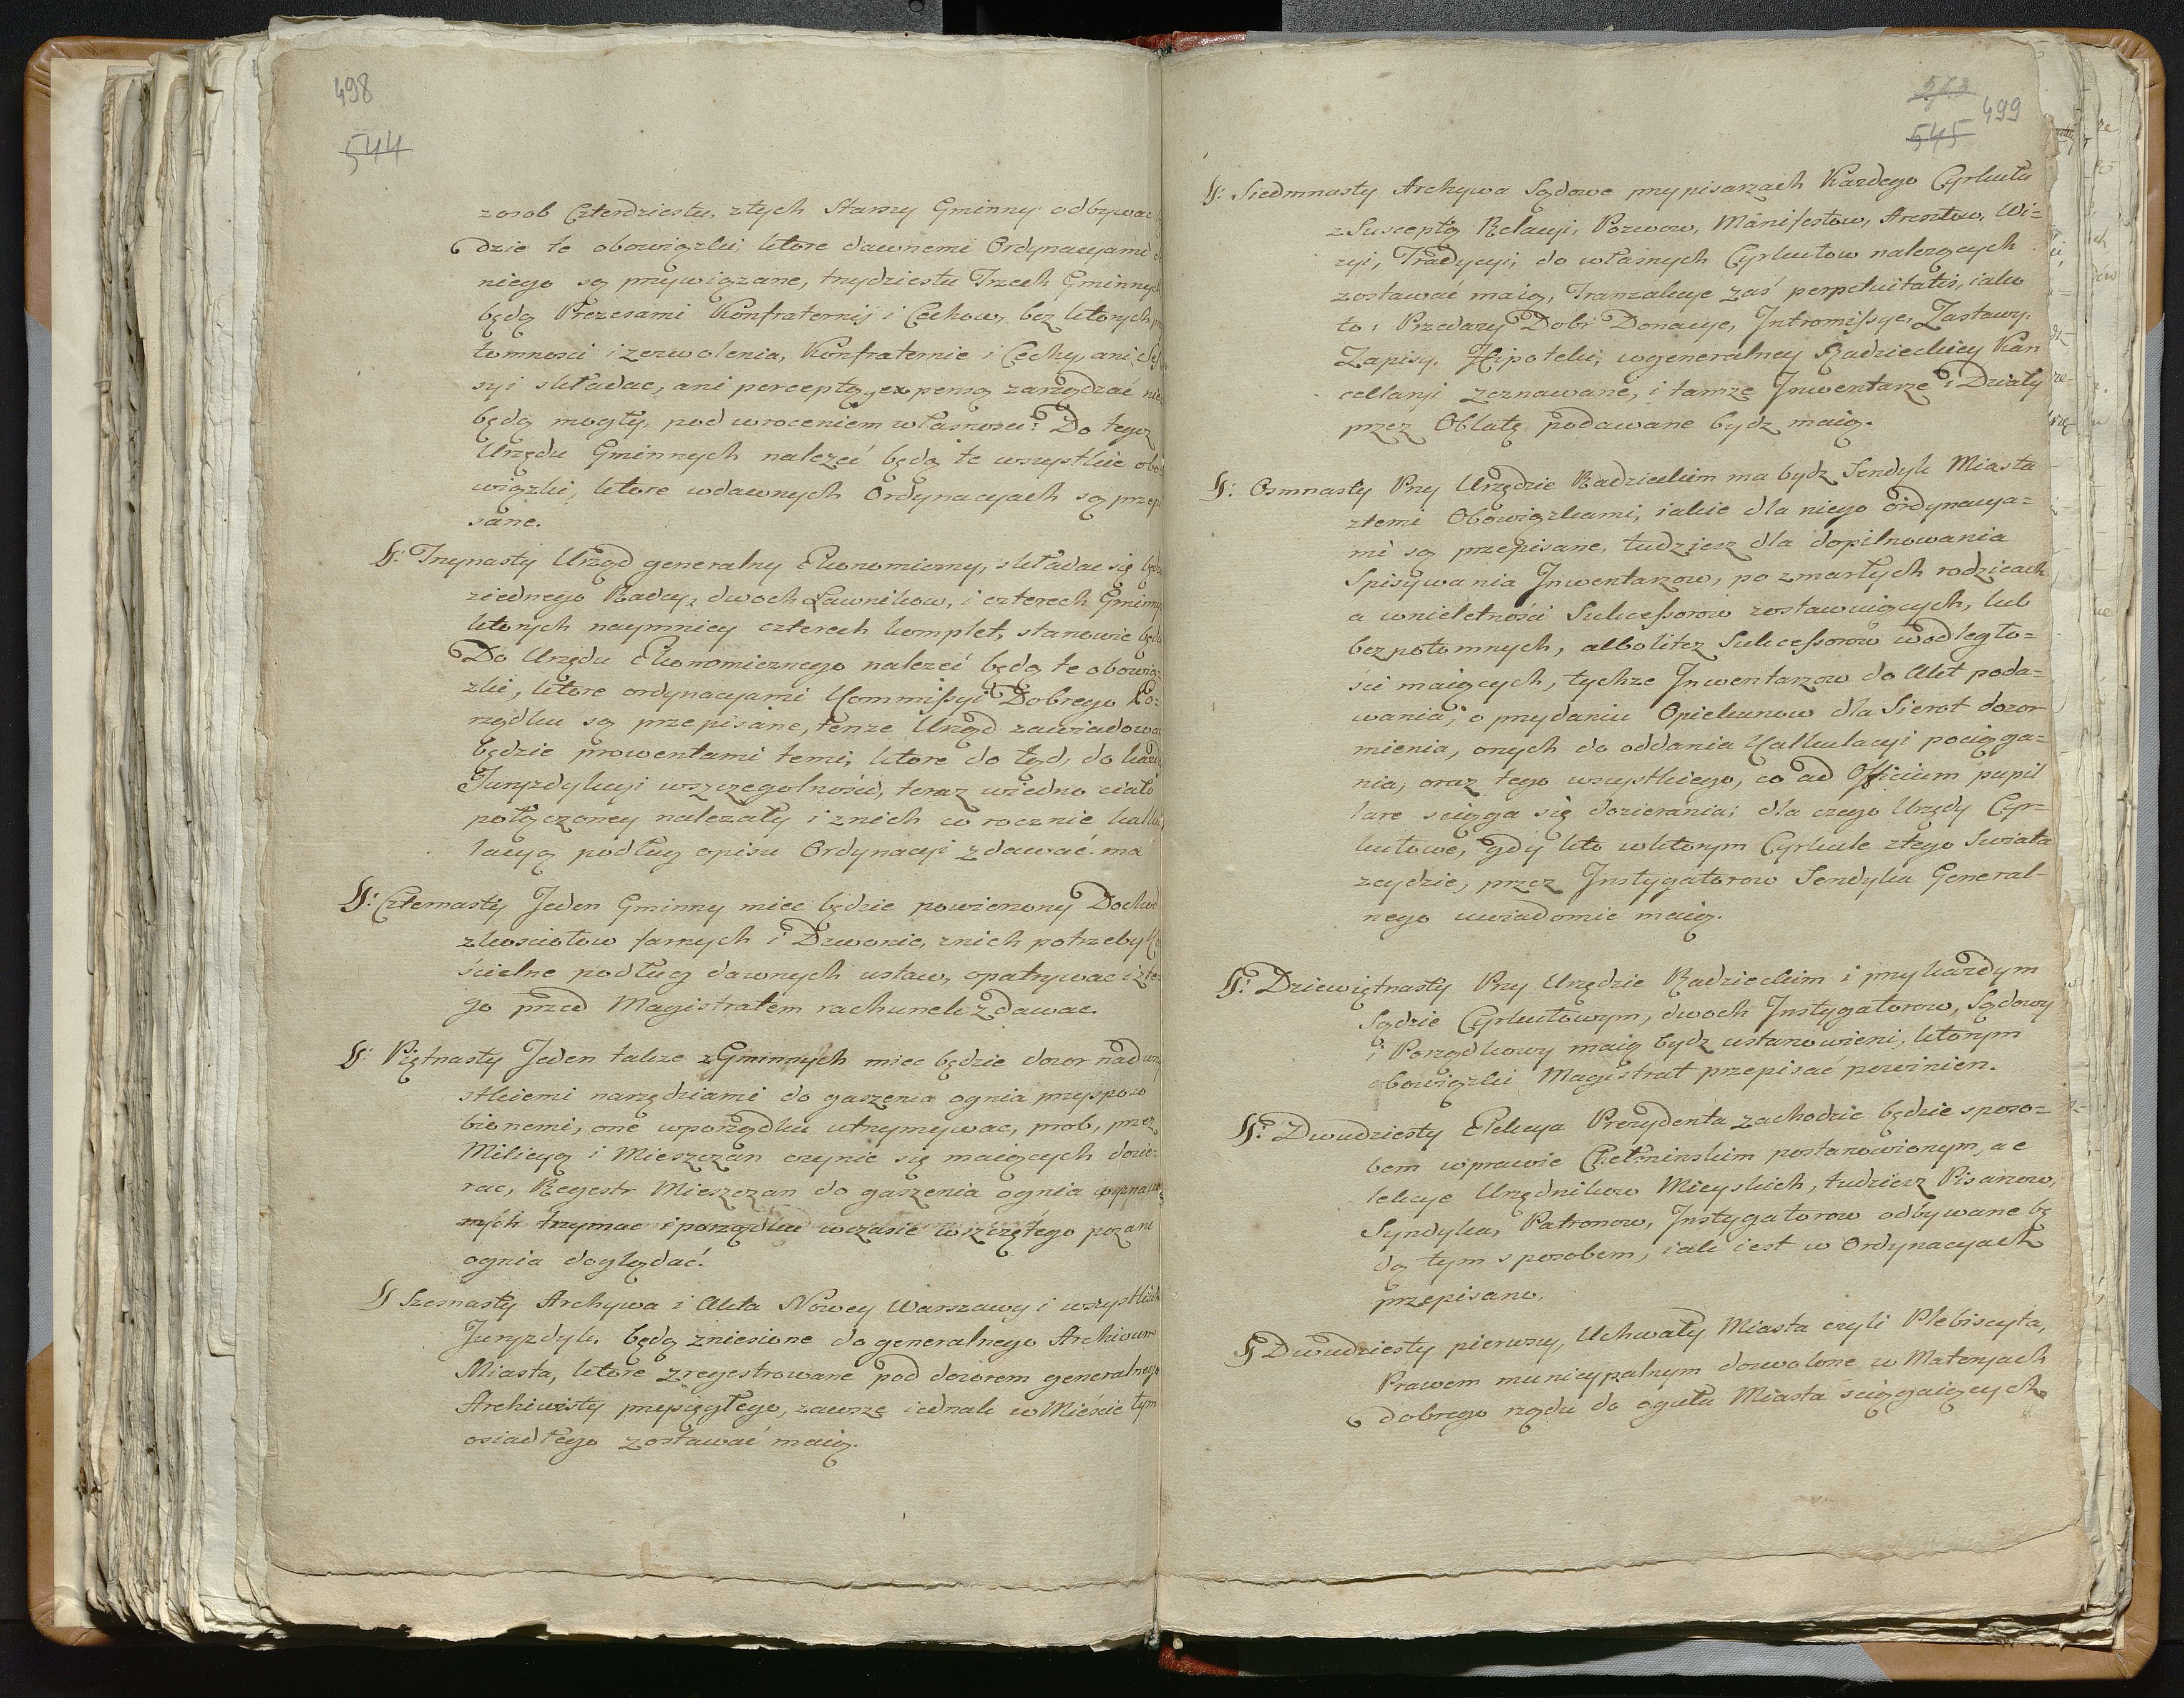 498
544
z osob Czterdziestu, z tych Starszy Gminny odbywac
dzie te obowiązki, ktore dawnemi Ordynacyami
niego są przywiązane, trzydziestu Trzech Gminnych
będą Prezesami Konfraternij i Cechow, bez ktorych
tomnosci i zezwolenia, Konfraternie i Cechy, ani
syi składac, ani perceptą, expensą zarządzać nie
będą mogły, pod wroceniem własnosci. Do tegoż
Urzędu Gminnych należeć będą te wszystkie obo
wiązki, ktore w dawnych Ordynacyach są przepi
sane.
§: Trzynasty Urząd generalny Ekonomiczny, składac się będzie
z iednego Radcy, dwoch Ławnikow, i czterech Gminnych
ktorych naymniey czterech komplet, stanowic będą
Do Urzędu Ekonomicznego należeć będą te obowią=
zki, ktore ordynacyami Kommissyi Dobrego Po=
rządku są przepisane, tenże Urząd zawiadowac
będzie prowentami temi, ktore do tąd, do każdey
Juryzdykcyi w szczegolności, teraz w iedno ciało
połączoney należały i z nich co rocznie kalku
lacyą podług opisu Ordynacyi zdawać ma
§: Czternasty Jeden Gminny miec będzie powierzony Dochod
z kosciołow farnych i Dzwonic, z nich potrzeby Ko
ścielne podług dawnych ustaw, opatrywac i z te
go przed Magistratem rachunek zdawac.
§: Piętnasty Jeden także z Gminnych miec będzie dozor nad wszy
stkiemi narzędziami do gaszenia ognia przysposo
bionemi, one w porządku utrzymywac, prob, przez
Milicyą i Mieszczan czynic się maiących dozie=
rac, Regestr Mieszczan do gaszenia ognia
nych trzymac i porządku w czasie wszczętego pożaru
ognia doglądać.
§ Szesnasty Archywa i Akta Nowey Warszawy i wszystkich
Juryzdyk. będą zniesione do generalnego Archivum
Miasta, ktore zregestrowane pod dozorem generalnego
Archiwisty przysięgłego, zawsze iednak w Mieście tym
osiadłego zostawać maią.
545
499
§: Siedmnasty Archywa Sądowe przy pisarzach Każdego Cyrkułu
z Susceptą Relacyi, Pozwow, Manifestow, Aresztow, Wi=
zyi, Tradycyi, do własnych Cyrkułow należących
zostawać maią, Tranzakcye zaś perpetuitatis, iako
to: Przedaży Dobr Donacye, Intromissye, Zastawy,
Zapisy, Hipoteki, w generalney Radzieckiey Kan
cellaryi zeznawane, i tamże Inwentarze i Działy
przez Oblatę podawane bydz maią.
§: Osmnasty Przy Urzędzie Radzieckim ma bydz Sendyk Miasta
z temi Obowiązkami, iakie dla niego ordynacya=
mi są przepisane, tudziesz dla dopilnowania
Spisywania Inwentarzow, po zmarłych rodzicach
a w nieletności Sukcessorow zostawuiących, lub
bezpotomnych, albo litez Sukcessorow w odległo=
ści maiących, tychże Inwentarzow do Akt poda=
wania, o przydaniu Opiekunow dla Sierot dozor
mienia, onych do oddania Kalkulacyi pociąga=
nia, oraz tego wszystkiego, co ad Officium pupil
lare sciąga się dozierania; dla czego Urzędy Cyr=
kułowe, gdy kto w ktorym Cyrkule z tego Swiata
zeydzie, przez Instygatorow Sendyka General=
nego uwiadomic maią.
§: Dziewiętnasty Przy Urzędzie Radzieckim i przy każdym
Sądzie Cyrkułowym, dwoch Instygatorow, Sądowy
i Porządkowy maią bydz ustanowieni, ktorym
obowiązki Magistrat przepisać powinien.
§: Dwudziesty Elekcya Prezydenta zachodzic będzie sposo=
bem w prawie Chełminskim postanowionym, a e
lekcye Urzędnikow Mieyskich, tudziesz Pisarzow,
Syndyka, Patronow, Instygatorow odbywane bę
dą tym sposobem, iak iest w Ordynacyach
przepisano.
§ Dwudziesty pierwszy, Uchwały Miasta czyli Plebiscyta,
Prawem municypalnym dozwolone w Materyach
dobrego rządu do ogułu Miasta sciągaiących